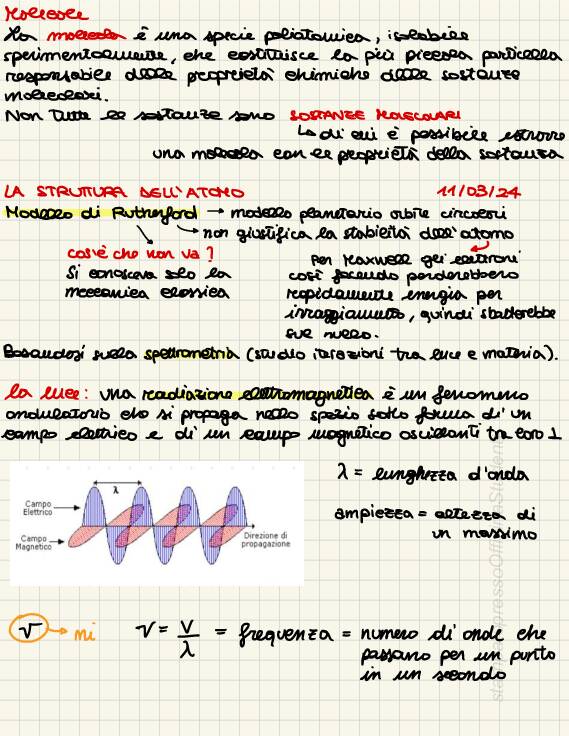 Molecole
La molecola è una specie poliatomica, isolabile
sperimentalmente, che costituisce la più piccola particella
responsabile delle proprietà chimiche delle sostanze
molecolari.
Non tutte le sostanze sono SOSTANZE MOLECOLARI
↳ di cui è possibile estrarre
una molecola con le proprietà della sostanza
LA STRUTTURA DELL'ATOMO 11/03/24
Modello di Rutherford → modello planetario orbite circolari
→ non giustifica la stabilità dell'atomo
cos'è che non va?
Si conosceva solo la
meccanica classica
Per Maxwell gli elettroni
così facendo perderebbero
rapidamente energia per
irraggiamento, quindi
sul nucleo.
Basandosi sulla spettrometria (studio iterazioni tra luce e materia).
la luce: una radiazione elettromagnetica è un fenomeno
ondulatorio che si propaga nello spazio sotto forma di un
campo elettrico e di un campo magnetico oscillanti tra loro ⊥
λ
Campo
Elettrico
Campo
Magnetico
Direzione di
propagazione
λ = lunghezza d'onda
ampiezza = altezza di
un massimo
ν → ni
ν = v/λ = frequenza = numero di onde che
passano per un punto
in un secondo